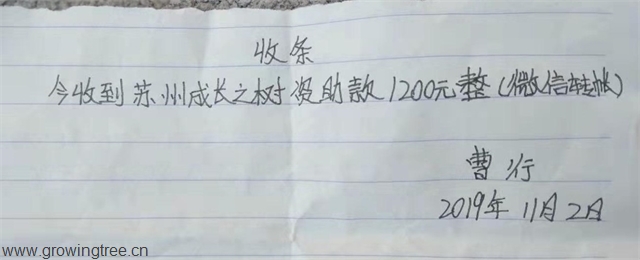 收条
今收到苏州成长之树资助款1200元整(微信转帐)
曹行
2019年11月2日
www.growingtree.cn